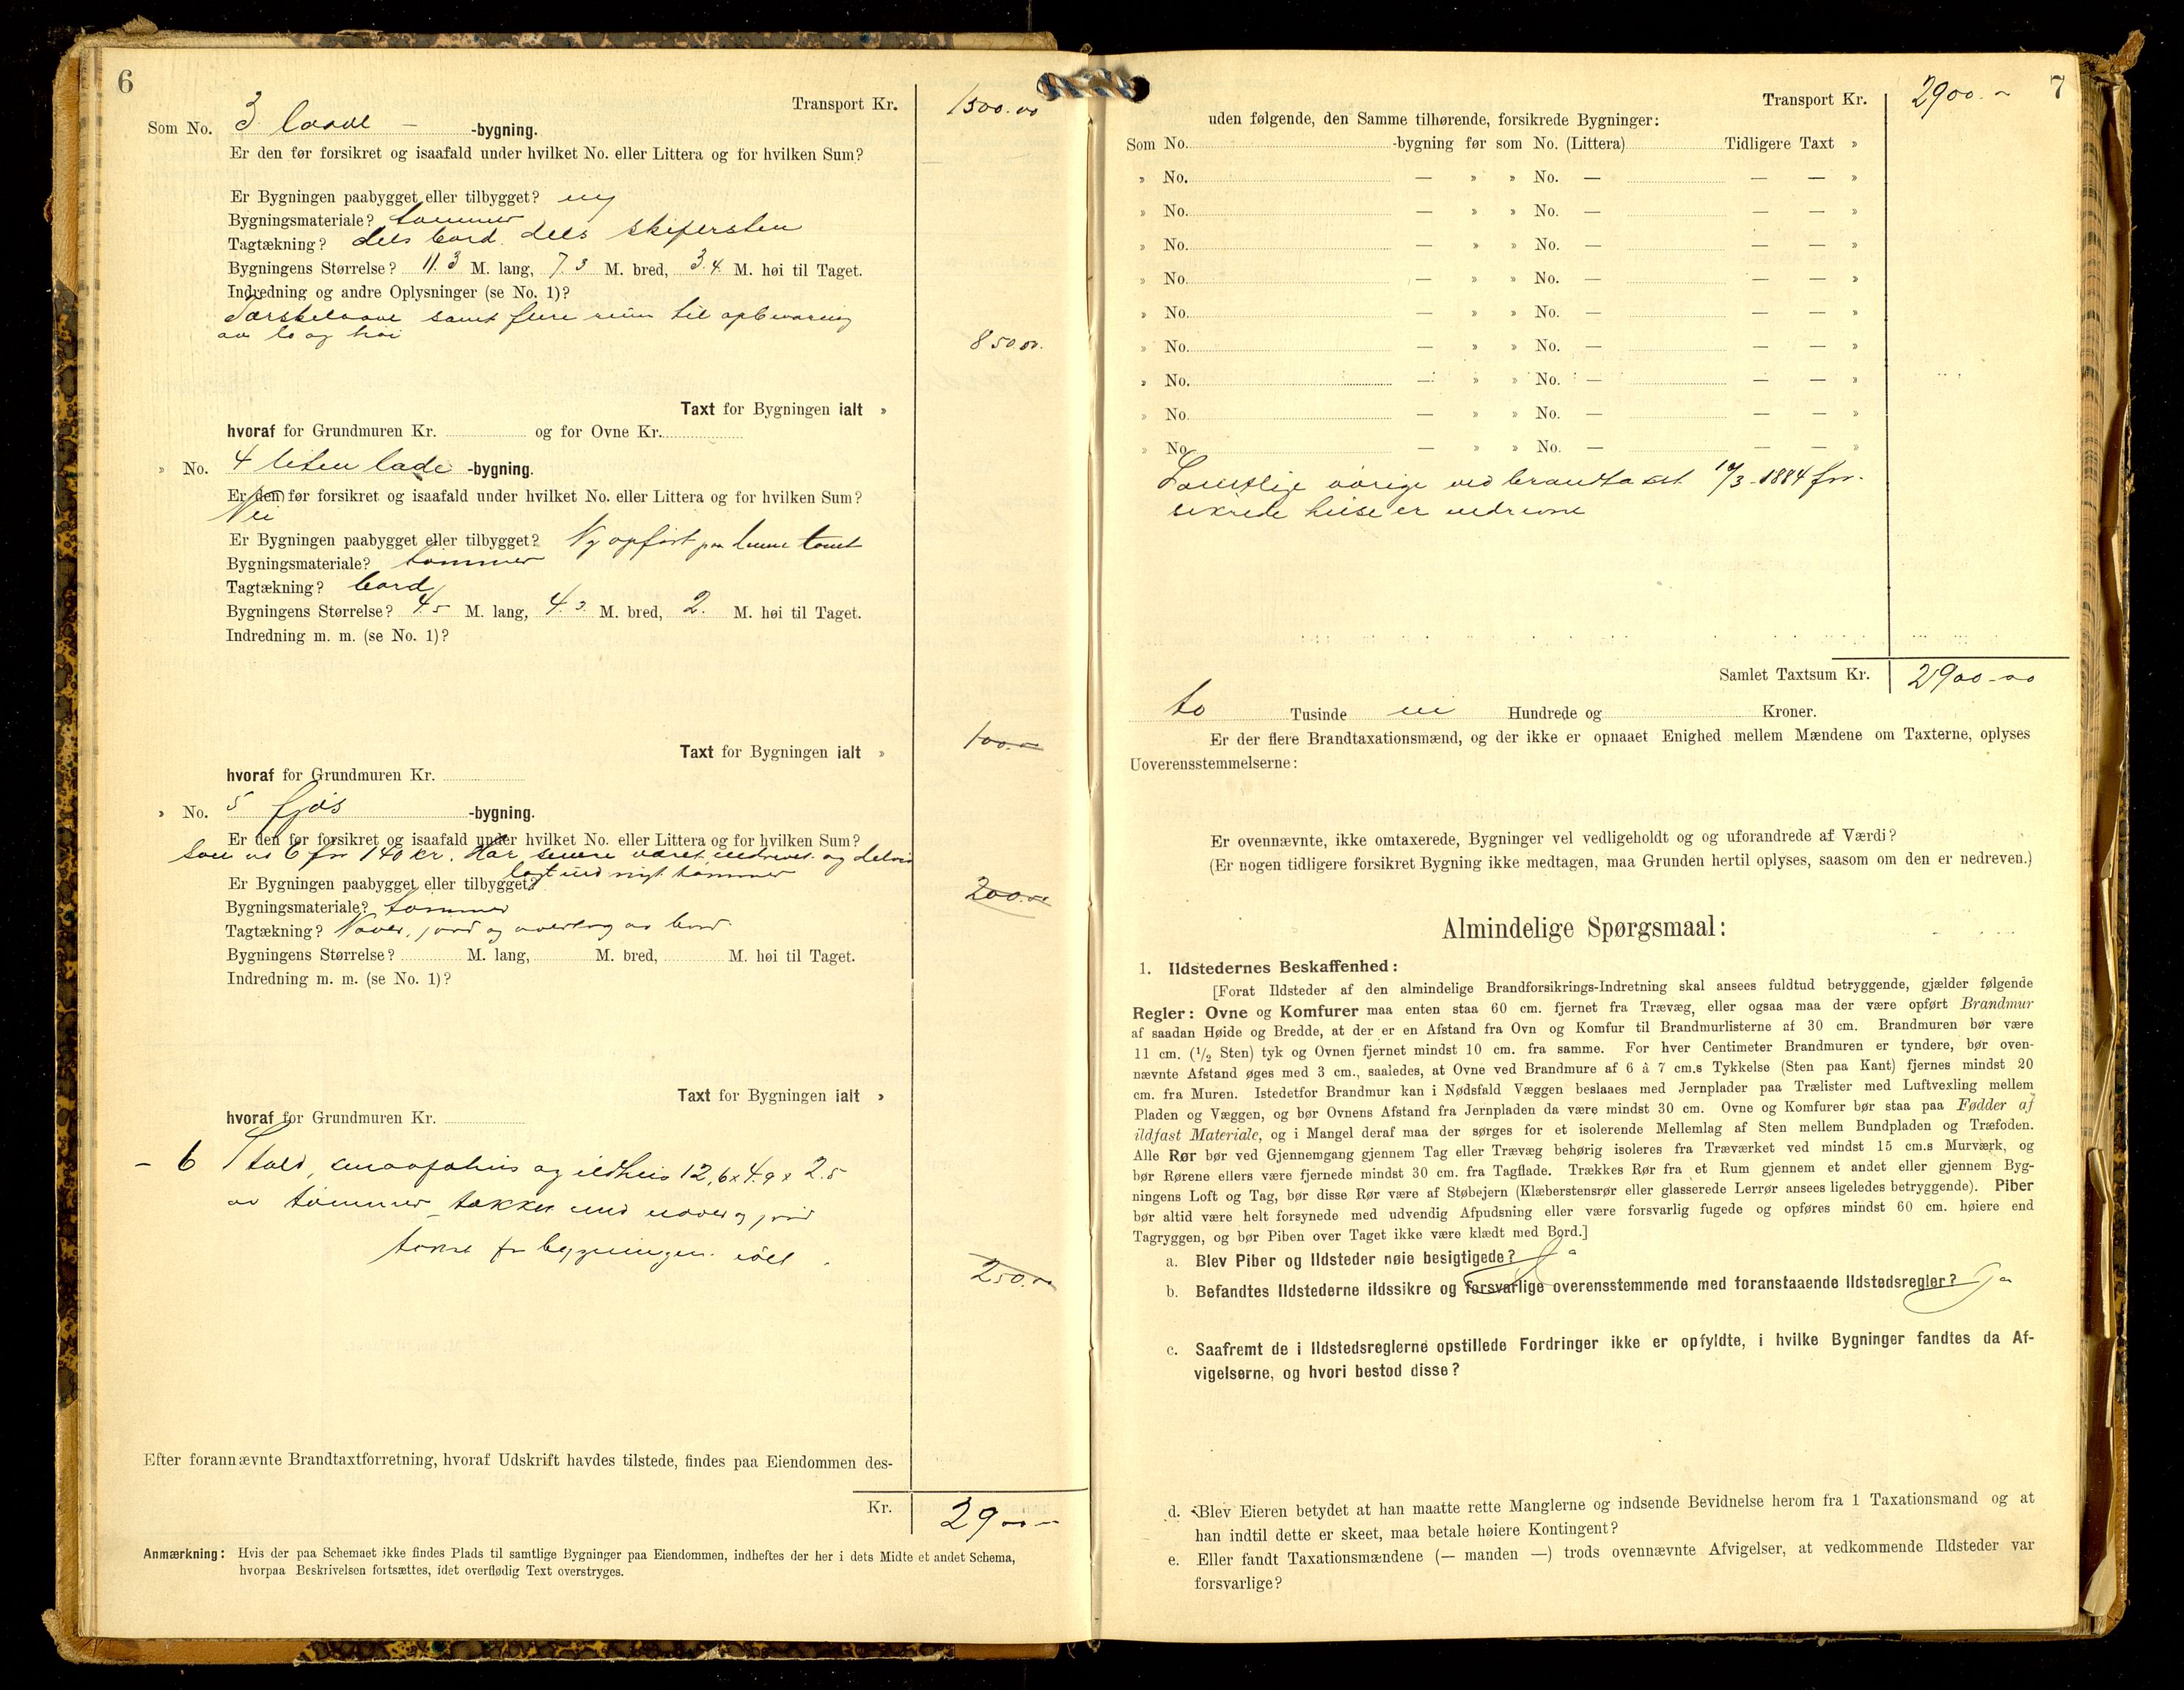 6
Transport Kr. 1500.00
Som No. 3 laave - -bygning.
Er den før forsikret og isaafald under hvilket No. eller Littera og for hvilken Sum?
Er Bygningen paabygget eller tilbygget? ny
Bygningsmateriale? tømmer
Tagtækning? dels bord. dels skifersten
Bygningens Størrelse? 11.3 M. lang, 7.3 M. bred, 3.4 M. høi til Taget.
Indredning og andre Oplysninger (se No. 1)?
Tærskelaave samt flere rum til opbevaring
av lo og høi
850.00.
Taxt for Bygningen ialt »
hvoraf for Grundmuren Kr. og for Ovne Kr.
» No. 4 liten lade -bygning.
Er den før forsikret og isaafald under hvilket No. eller Littera og for hvilken Sum?
Nei
Er Bygningen paabygget eller tilbygget? Ny opført paa denne tomt
Bygningsmateriale? tømmer
Tagtækning? bord
Bygningens Størrelse? 4.5 M. lang, 4.3. M. bred, 2. M. høi til Taget.
Indredning m. m. (se No. 1)?
Taxt for Bygningen ialt » 100.00
hvoraf for Grundmuren Kr.
» No. 5 fjøs -bygning.
Er den før forsikret og isaafald under hvilket No. eller Littera og for hvilken Sum?
Som no 6 for 140 kr. Har senere været nedrevet og delvis
lagt ind nyt tømmer
Er Bygningen paabygget eller tilbygget?
200.00
Bygningsmateriale? tømmer
Tagtækning? Næver, jord og overlag av bord
Bygningens Størrelse? M. lang, M. bred, M. høi til Taget.
Indredning m. m. (se No. 1)?
Taxt for Bygningen ialt »
hvoraf for Grundmuren Kr.
- 6 Stald, smaafæhus og ildhus 12,6 x 4.9 x 2.5
av tømmer, tækket med næver og jord
takst for bygningen ialt
250.00
Efter forannævnte Brandtaxtforretning, hvoraf Udskrift havdes tilstede, findes paa Eiendommen des-
Kr. 2900-
Anmærkning: Hvis der paa Schemaet ikke findes Plads til samtlige Bygninger paa Eiendommen, indheftes der her i dets Midte et andet Schema,
hvorpaa Beskrivelsen fortsættes, idet overflødig Text overstryges.
7
Transport Kr. 2900.-
uden følgende, den Samme tilhørende, forsikrede Bygninger:
Som No. -bygning før som No. (Littera) Tidligere Taxt »
» No. — » » No. — — — »
» No. — » » No. — — — »
» No. — » » No. — — — »
» No. — » » No. — — — »
» No. — » » No. — — — »
» No. — » » No. — — — »
» No. — » » No. — — — »
» No. — » » No. — — — »
» No. — » » No. — — — »
Samtlige øvrige ved brandtakst 10/3-1884 for-
sikrede huse er nedrevne
Samlet Taxtsum Kr. 2900-00
to Tusinde ni Hundrede og Kroner.
Er der flere Brandtaxationsmænd, og der ikke er opnaaet Enighed mellem Mændene om Taxterne, oplyses
Uoverensstemmelserne:
Er ovennævnte, ikke omtaxerede, Bygninger vel vedligeholdt og og uforandrede af Værdi?
(Er nogen tidligere forsikret Bygning ikke medtagen, maa Grunden hertil oplyses, saasom om den er nedreven.)
Almindelige Spørgsmaal:
1. Ildstedernes Beskaffenhed:
[Forat Ildsteder af den almindelige Brandforsikrings-Indretning skal ansees fuldtud betryggende, gjælder følgende
Regler: Ovne og Komfurer maa enten staa 60 cm. fjernet fra Trævæg, eller ogsaa maa der være opført Brandmur
af saadan Høide og Bredde, at der er en Afstand fra Ovn og Komfur til Brandmurlisterne af 30 cm. Brandmuren bør være
11 cm. (1/2 Sten) tyk og Ovnen fjernet mindst 10 cm. fra samme. For hver Centimeter Brandmuren er tyndere, bør oven-
nævnte Afstand øges med 3 cm., saaledes, at Ovne ved Brandmure af 6 à 7 cm.s Tykkelse (Sten paa Kant) fjernes mindst 20
cm. fra Muren. Istedetfor Brandmur kan i Nødsfald Væggen beslaaes med Jernplader paa Trælister med Luftvexling mellem
Pladen og Væggen, og bør Ovnens Afstand fra Jernpladen da være mindst 30 cm. Ovne og Komfurer bør staa paa Fødder af
ildfast Materiale, og i Mangel deraf maa der sørges for et isolerende Mellemlag af Sten mellem Bundpladen og Træfoden.
Alle Rør bør ved Gjennemgang gjennem Tag eller Trævæg behørig isoleres fra Træværket ved mindst 15 cm.s Murværk, og
bør Rørene ellers være fjernede mindst 30 cm. fra Tagflade. Trækkes Rør fra et Rum gjennem et andet eller gjennem Byg-
ningens Loft og Tag, bør disse Rør være af Støbejern (Klæberstensrør eller glasserede Lerrør ansees ligeledes betryggende). Piber
bør altid være helt forsynede med udvendig Afpudsning eller være forsvarlig fugede og opføres mindst 60 cm. høiere end
Tagryggen, og bør Piben over Taget ikke være klædt med Bord.]
a. Blev Piber og Ildsteder nøie besigtigede? Ja
b. Befandtes Ildstederne ildssikre og forsvarlige overensstemmende med foranstaaende Ildstedsregler? Ja
c. Saafremt de i Ildstedsreglerne opstillede Fordringer ikke er opfyldte, i hvilke Bygninger fandtes da Af-
vigelserne, og hvori bestod disse?
d. Blev Eieren betydet at han maatte rette Manglerne og indsende Bevidnelse herom fra 1 Taxationsmand og at
han indtil dette er skeet, maa betale høiere Kontingent?
e. Eller fandt Taxationsmændene (— manden —) trods ovennævnte Afvigelser, at vedkommende Ildsteder var
forsvarlige?